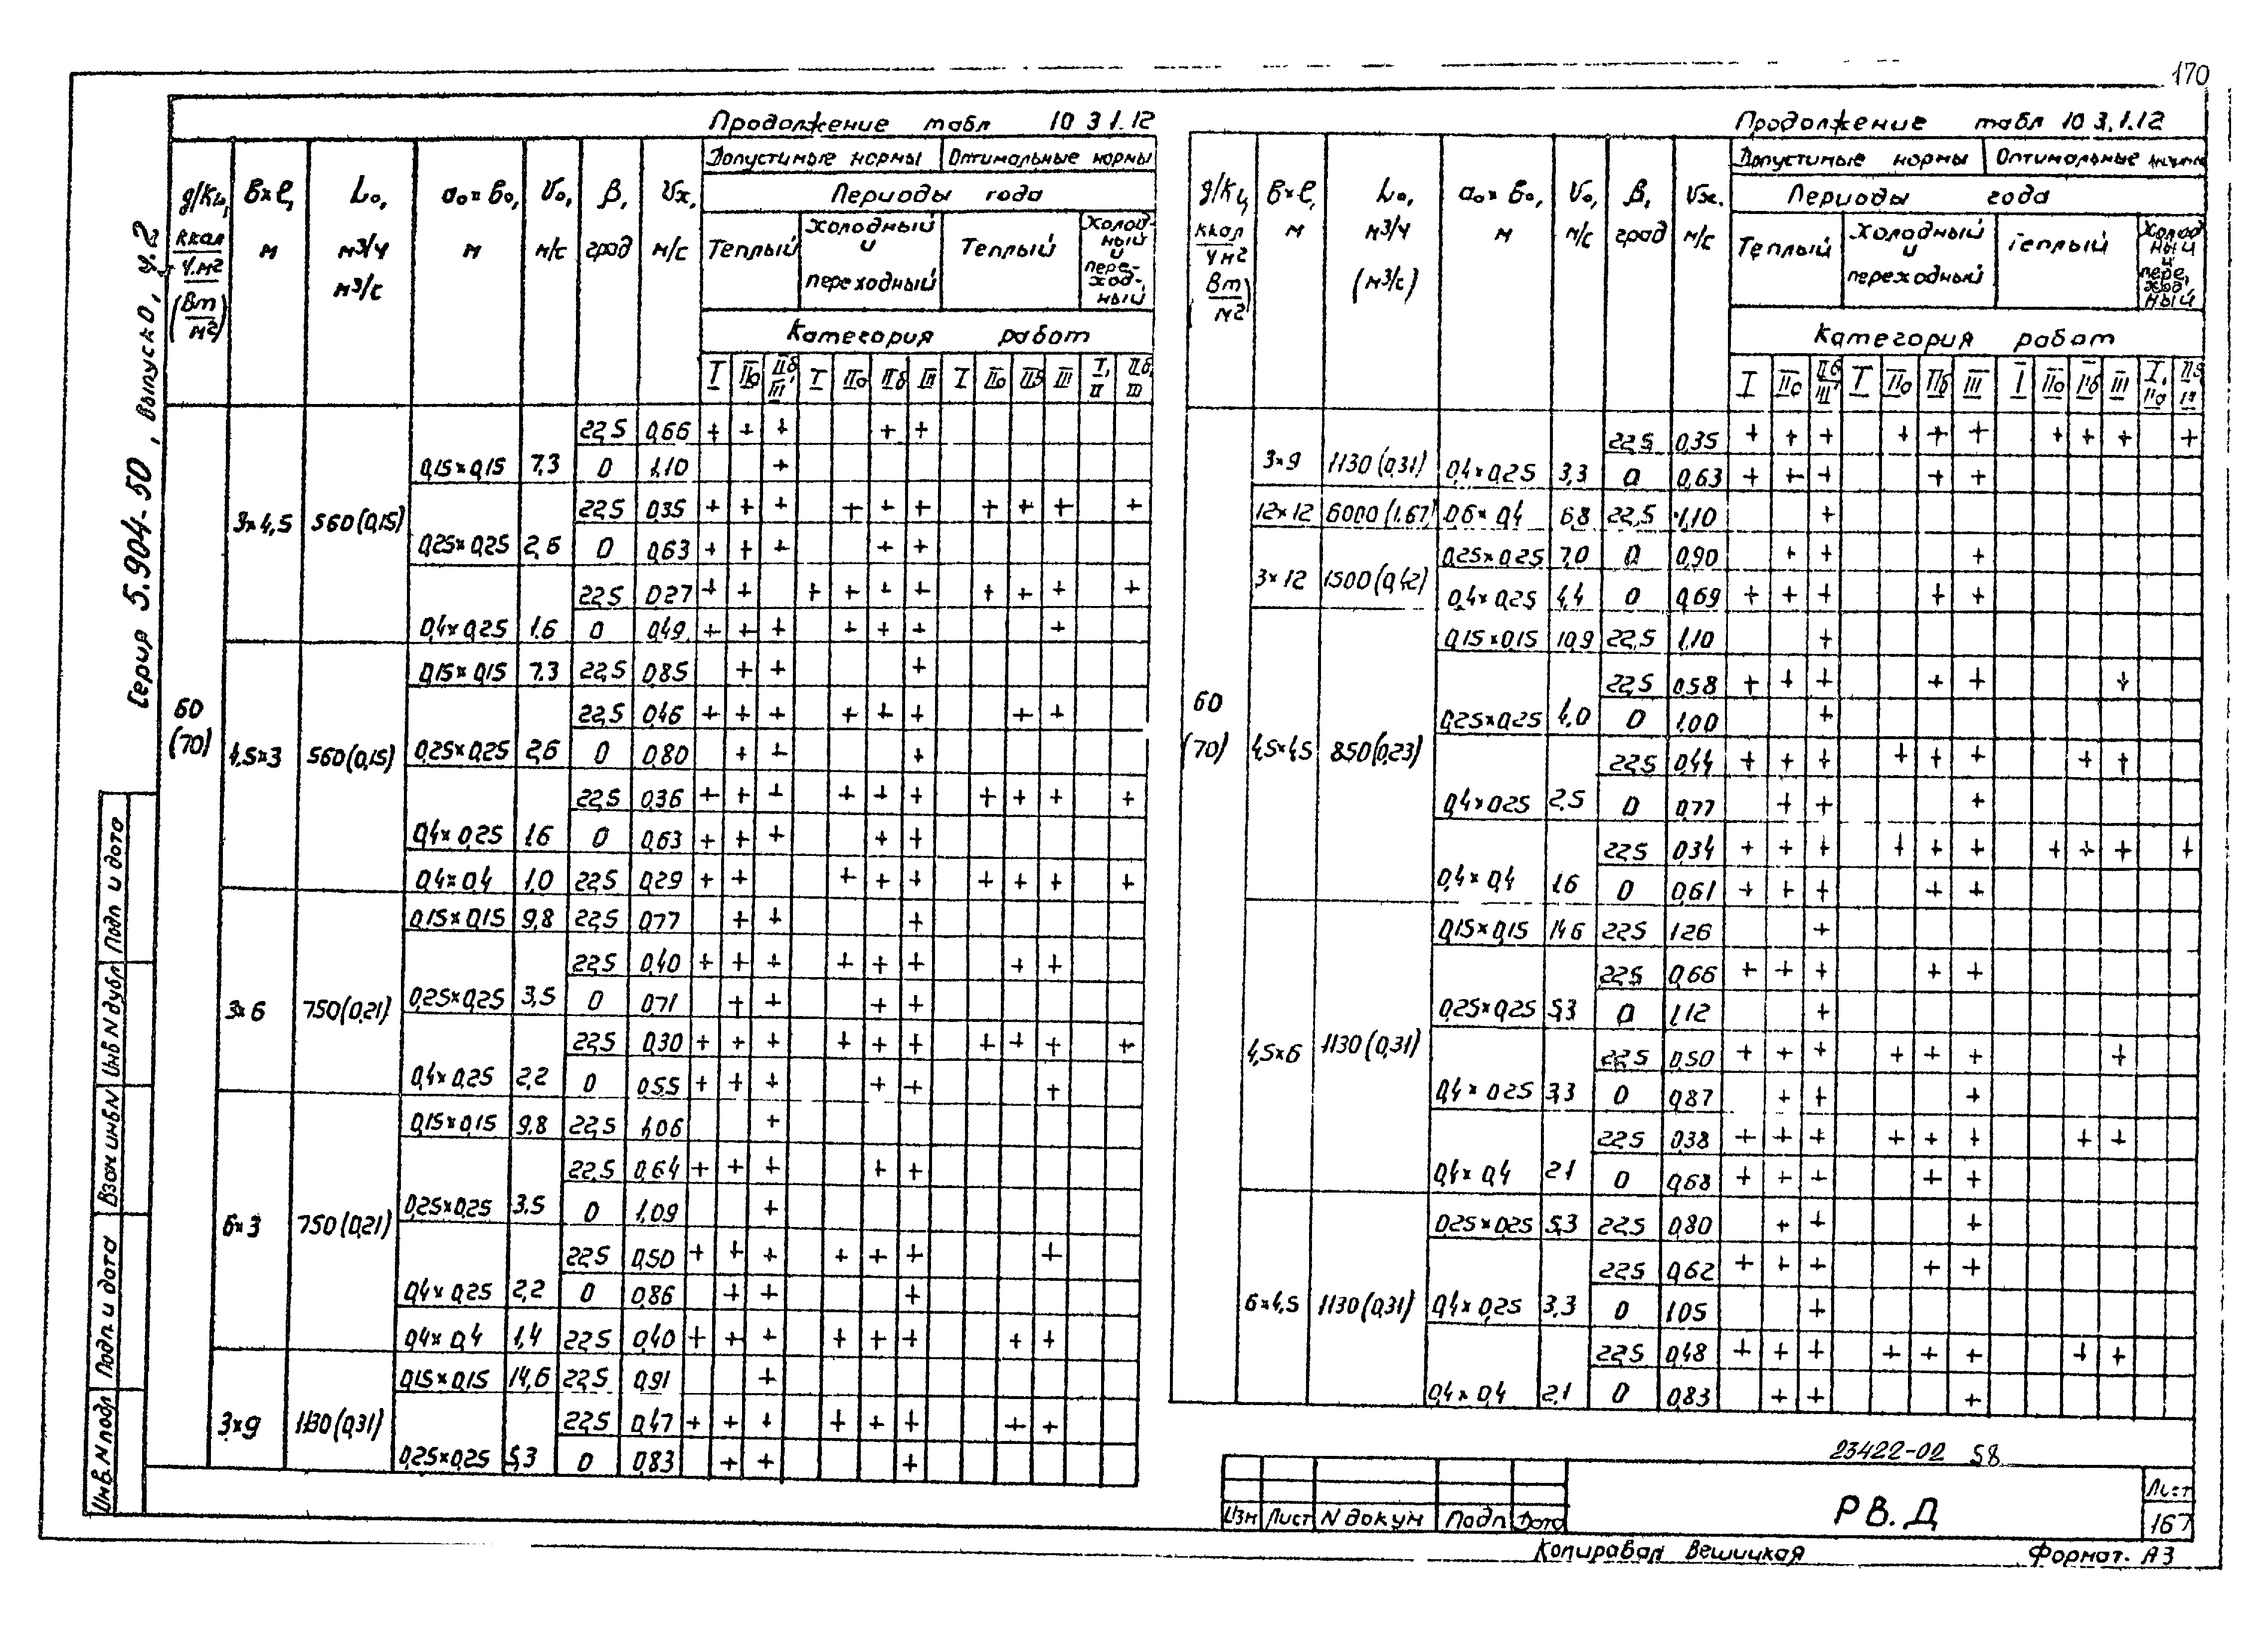 170
Серия 5.904-50, выпуск 0, ч.2
Продолжение табл 10 3 1.12
в×ℓ, м
L₀, м³/ч м³/с
a₀×в₀, м
V₀, м/с
β, град
Vх, м/с
ккал/ч.м² (Вт/м²)
Допустимые нормы Оптимальные нормы
Периоды года
Теплый Холодный и переходный Теплый Холодный и переходный
Категория работ
I IIа IIб III I IIа IIб III I IIа IIб III I, II IIб, III
60 (70)
3×4,5 560(0,15)
0,15×0,15 7.3 22,5 0,66 + + + + +
0 1,10 +
0,25×0,25 2,6 22,5 0,35 + + + + + + + + + +
0 0,63 + + + + +
0,4×0,25 1.6 22,5 0,27 + + + + + + + + + +
0 0,49 + + + + + + +
4,5×3 560(0,15)
0,15×0,15 7.3 22,5 0,85 + + +
0,25×0,25 2,6 22,5 0,46 + + + + + + + +
0 0,80 + + +
0,4×0,25 1,6 22,5 0,36 + + + + + + + + + +
0 0,63 + + + + +
0,4×0,4 1,0 22,5 0,29 + + + + + + + + +
3×6 750(0,21)
0,15×0,15 9,8 22,5 0,77 + + +
0,25×0,25 3,5 22,5 0,40 + + + + + + + +
0 0,71 + + + +
0,4×0,25 2,2 22,5 0,30 + + + + + + + + + +
0 0,55 + + + + + +
6×3 750(0,21)
0,15×0,15 9,8 22,5 1,06 +
0,25×0,25 3,5 22,5 0,64 + + + + +
0 1,09 +
0,4×0,25 2,2 22,5 0,50 + + + + + + +
0 0,86 + + +
0,4×0,4 1,4 22,5 0,40 + + + + + + + +
3×9 1130(0,31)
0,15×0,15 14,6 22,5 0,91 +
0,25×0,25 5,3 22,5 0,47 + + + + + + + +
0 0,83 + + +
Продолжение табл 10 3.1.12
в×ℓ, м
L₀, м³/ч (м³/с)
a₀×в₀, м
V₀, м/с
β, град
Vх. м/с
ккал/ч м² (Вт/м²)
Допустимые нормы Оптимальные
Периоды года
Теплый Холодный и переходный Теплый Холодный и переходный
Категория работ
I IIа IIб III I IIа IIб III I IIа IIб III I, IIа IIб
60 (70)
3×9 1130(0,31) 0,4×0,25 3,3 22,5 0,35 + + + + + + + + + +
0 0,63 + + + + +
12×12 6000(1.67) 0,6×0,4 6,8 22,5 1,10 +
3×12 1500(0,42)
0,25×0,25 7,0 0 0,90 + + +
0,4×0,25 4,4 0 0,69 + + + + +
4,5×4,5 850(0,23)
0,15×0,15 10,9 22,5 1,10 +
0,25×0,25 4,0 22,5 0,58 + + + + + +
0 1,00 +
0,4×0,25 2,5 22,5 0,44 + + + + + + + +
0 0,77 + + +
0,4×0,4 1,6 22,5 0,34 + + + + + + + + + +
0 0,61 + + + + +
4,5×6 1130(0,31)
0,15×0,15 14,6 22,5 1,26 +
0,25×0,25 5,3 22,5 0,66 + + + + +
0 1,12 +
0,4×0,25 3,3 22,5 0,50 + + + + + + +
0 0,87 + + +
0,4×0,4 2,1 22,5 0,38 + + + + + + + +
0 0,68 + + + + +
6×4,5 1130(0,31)
0,25×0,25 5,3 22,5 0,80 + + +
0,4×0,25 3,3 22,5 0,62 + + + + +
0 1,05 +
0,4×0,4 2,1 22,5 0,48 + + + + + + + +
0 0,83 + + +
23422-02 58
Изм Лист N докум Подп Дата
РВ.Д
Лист
167
Копировал Вешицкая Формат. А3
Инв. N подл Подп. и дата Взам инв N Инв N дубл Подп и дата